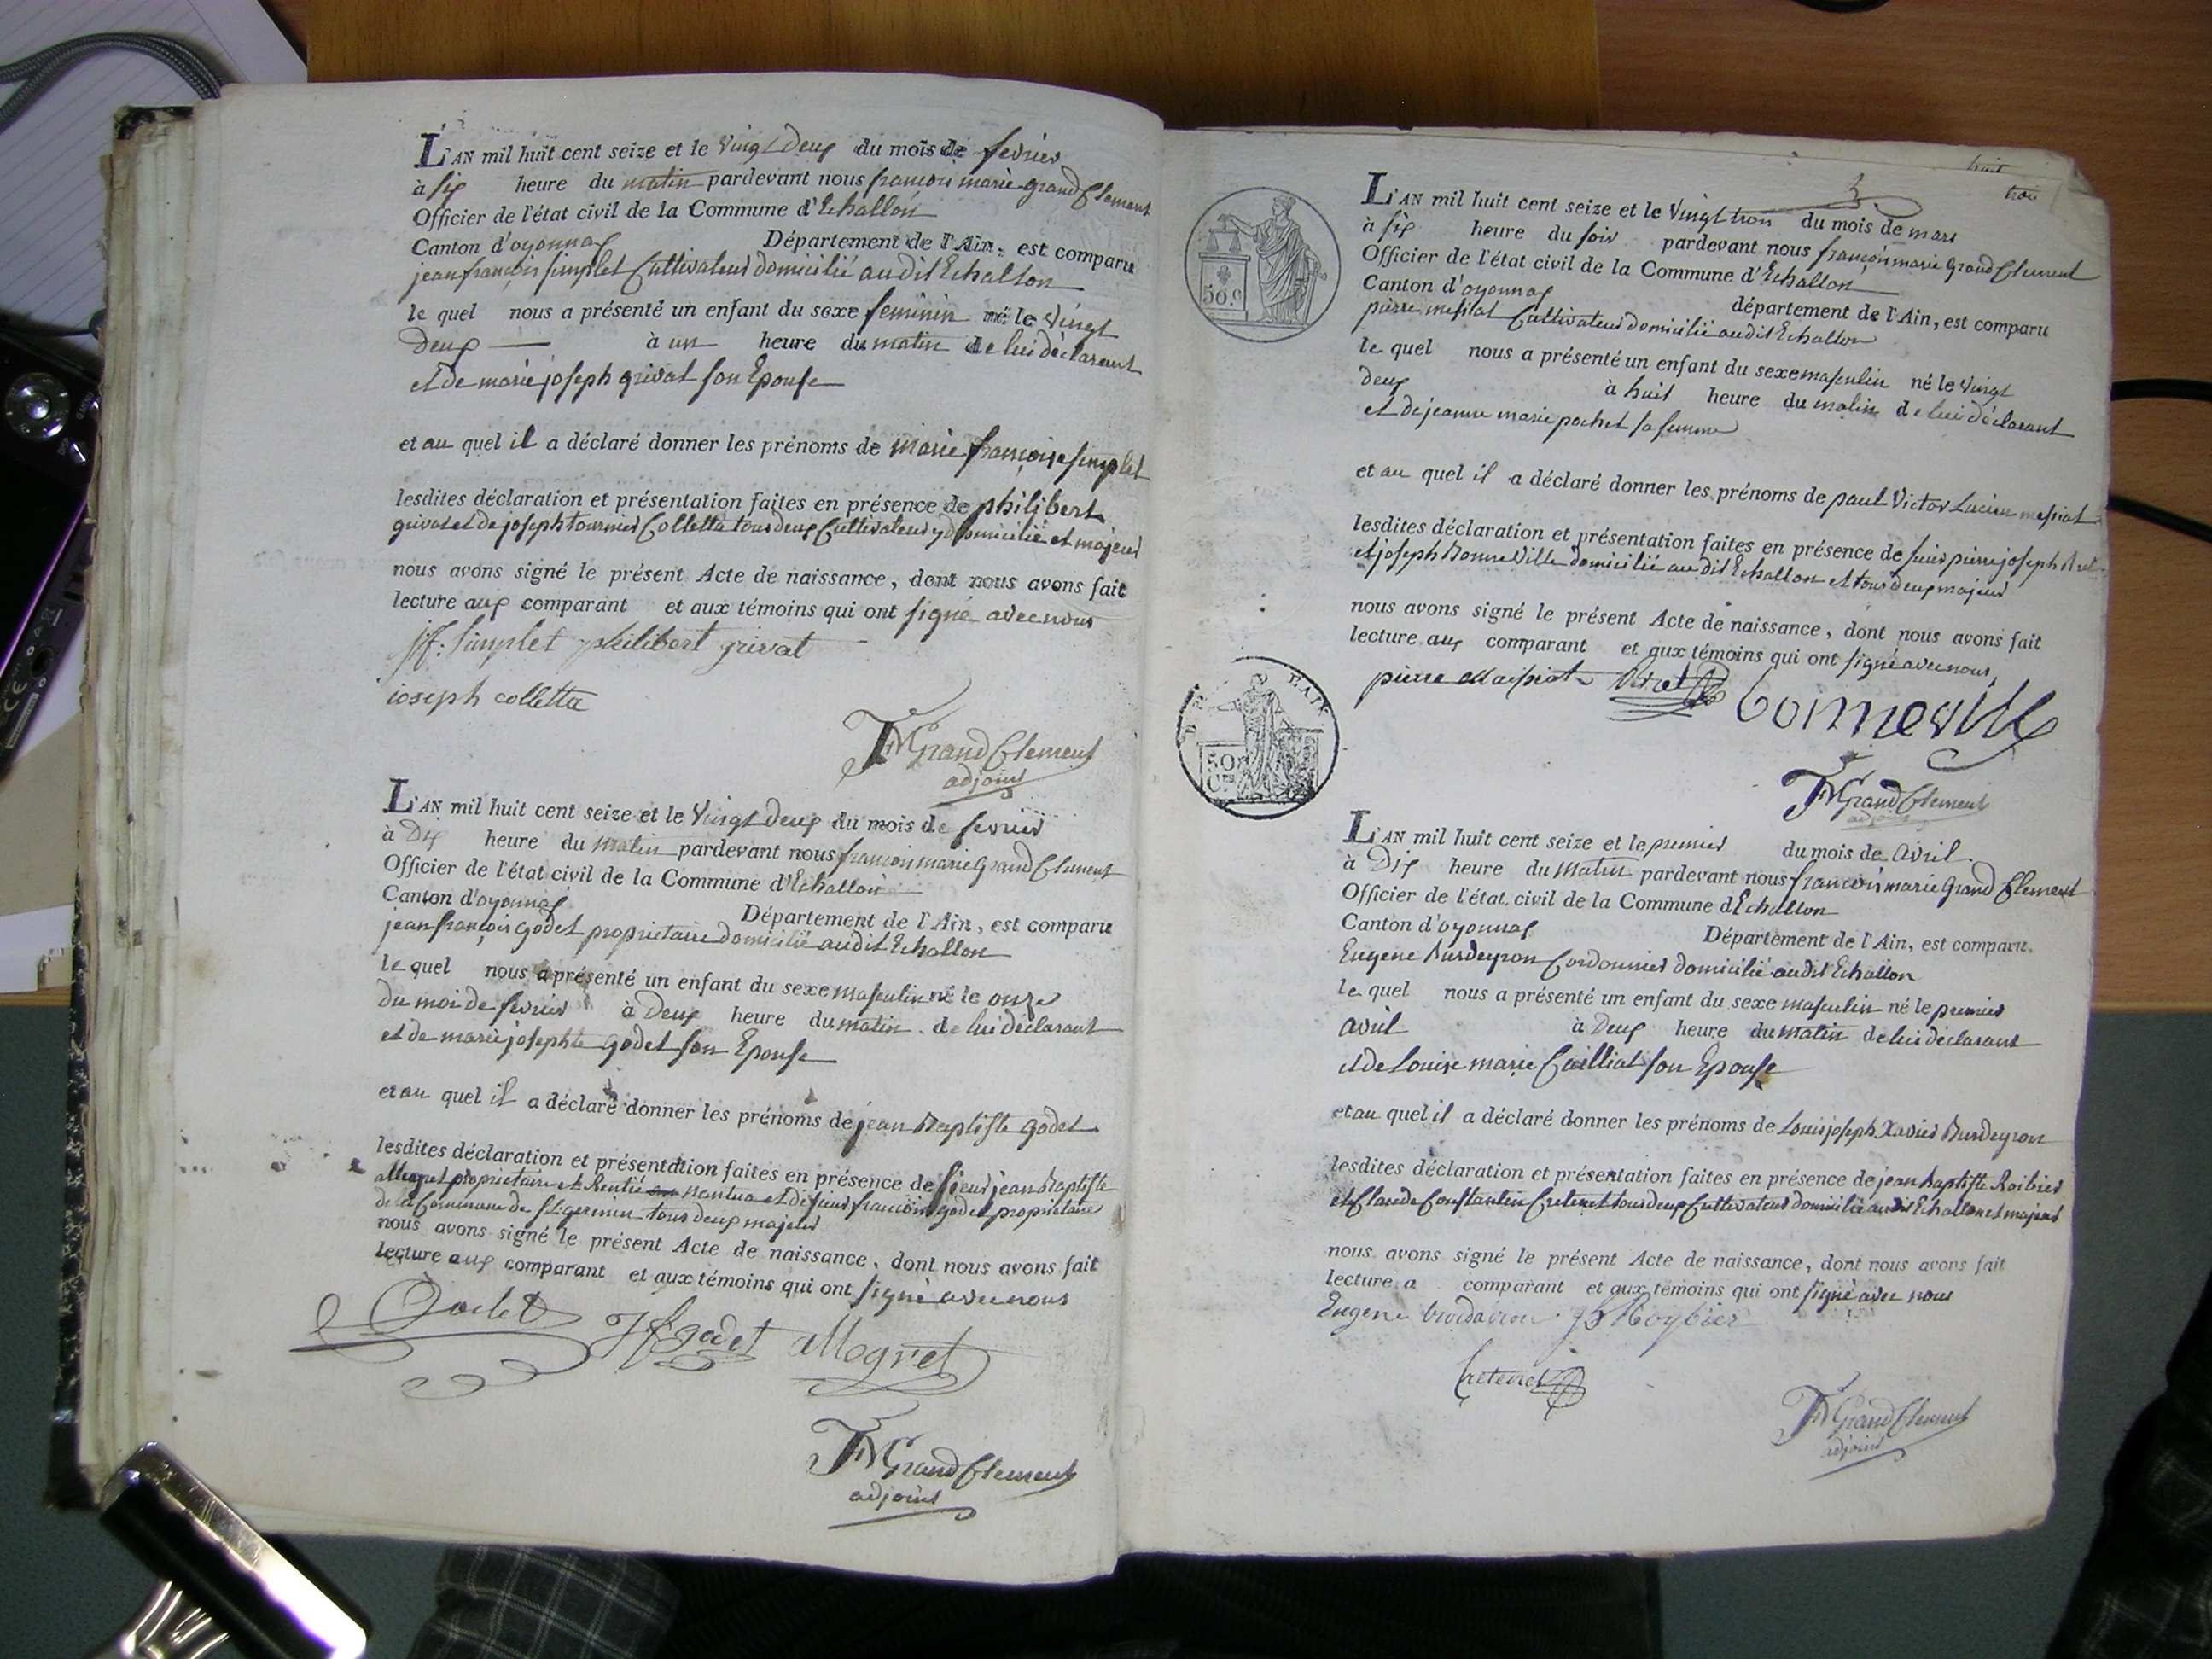 L'AN mil huit cent seize et le vingt deux du mois de fevrier
à six heure du matin pardevant nous francois marie grand Clement
Officier de l'état civil de la Commune d'Echallon
Canton d'oyonnax Département de l'Ain, est comparu
jean françois simplet Cultivateur domicilié audit Echallon
le quel nous a présenté un enfant du sexe feminin né le vingt
deux à un heure du matin de lui déclarant
et de marie joseph grivat son Epouse
et au quel il a déclaré donner les prénoms de marie françoise simplet
lesdites déclaration et présentation faites en présence de philibert
grivat et de joseph tournier Colletta tous deux Cultivateurs y domicilié et majeur
nous avons signé le présent Acte de naissance, dont nous avons fait
lecture aux comparant et aux témoins qui ont signé avec nous
jf: simplet philibert grivat
ioseph colletta
FM Grand Clement
adjoint
L'AN mil huit cent seize et le vingt deux du mois de fevrier
à Dix heure du matin pardevant nous francois marie Grand Clement
Officier de l'état civil de la Commune d'Echallon
Canton d'oyonnax Département de l'Ain, est comparu
jean françois godet proprietaire domicilié audit Echallon
le quel nous a présenté un enfant du sexe masculin né le onze
du moi de fevrier à Deux heure du matin de lui déclarant
et de marie josephte godet son Epouse
et au quel il a déclaré donner les prénoms de jean Baptiste godet
lesdites déclaration et présentation faites en présence de sieur jean Baptiste
allegret proprietaire et Rentié nantua et de sieur francois godet proprietaire
de la Commune de st germain tous deux majeur
nous avons signé le présent Acte de naissance, dont nous avons fait
lecture aux comparant et aux témoins qui ont signé avec nous
Godet godet allegret
FM Grand Clement
adjoint
huit
trois
L'AN mil huit cent seize et le vingt trois du mois de mars
à six heure du soir pardevant nous françois marie Grand Clement
Officier de l'état civil de la Commune d'Echallon
Canton d'oyonnax département de l'Ain, est comparu
pierre messiat Cultivateur domicilié audit Echallon
le quel nous a présenté un enfant du sexe masculin né le vingt
deux à huit heure du matin de lui déclarant
et de jeanne marie pochet sa femme
et au quel il a déclaré donner les prénoms de paul Victor Lucien messiat
lesdites déclaration et présentation faites en présence de sieur pierre joseph
et joseph Bonneville domicilié audit Echallon et tous deux majeur
nous avons signé le présent Acte de naissance, dont nous avons fait
lecture aux comparant et aux témoins qui ont signé avec nous
pierre Maissiat bonneville
50.c
50
FM Grand Clement
adjoint
L'AN mil huit cent seize et le premier du mois de avril
à Dix heure du matin pardevant nous francois marie Grand Clement
Officier de l'état civil de la Commune d'Echallon
Canton d'oyonnax Département de l'Ain, est comparu
Eugene Burdeyron Cordonnier domicilié audit Echallon
le quel nous a présenté un enfant du sexe masculin né le premier
avril à Deux heure du matin de lui déclarant
et de Louise marie Cailliat son Epouse
et au quel il a déclaré donner les prénoms de Louis joseph Xavier Burdeyron
lesdites déclaration et présentation faites en présence de jean baptiste Roibier
et Claude Constantin Cretenet tous deux Cultivateur domicilié audit Echallon et majeur
nous avons signé le présent Acte de naissance, dont nous avons fait
lecture a comparant et aux témoins qui ont signé avec nous
Eugene JB Roybier
Cretenet
FM Grand Clement
adjoint